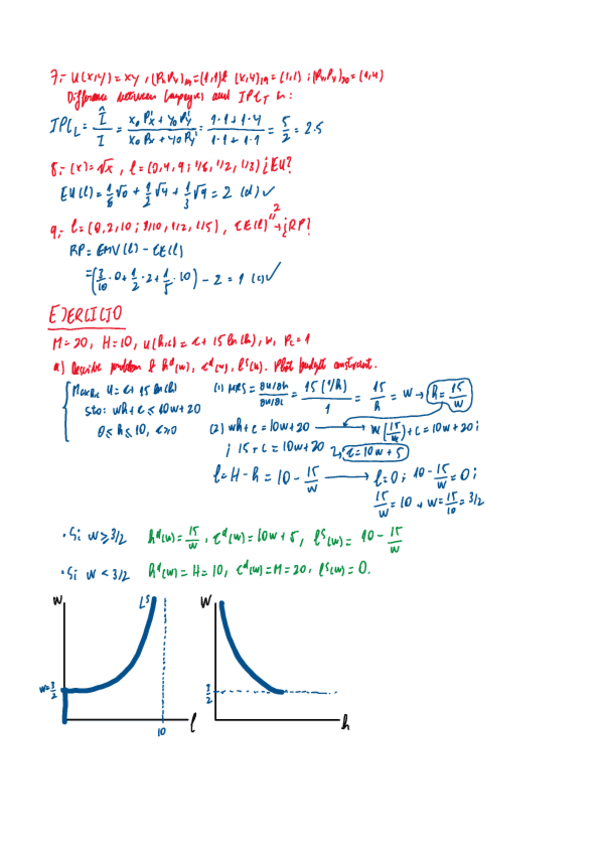 7.- U(x,y)=xy, (Px,Py)19=(1,1) (x,y)19=(1,1); (Px,Py)20=(1,4)
Difference between Laspeyres and IPCT in:
IPCL = Î/I = (x0 P'x + y0 P'y)/(x0 Px + y0 Py) = (1·1+1·4)/(1·1+1·1) = 5/2 = 2.5
8.- (x)=√x, l=(0,4,9; 1/6, 1/2, 1/3) ¿EU?
EU(l) = 1/6 √0 + 1/2 √4 + 1/3 √9 = 2 (d) ✓
9.- l=(0,2,10; 3/10, 1/2, 1/5), CE(l)=2 → ¿RP?
RP = EMV(l) - CE(l)
= (3/10 · 0 + 1/2 · 2 + 1/5 · 10) - 2 = 1 (c) ✓
EJERCICIO
M=20, H=10, u(h,c)= c+15 ln(h), w, Pc=1
a) Describe problem & hd(w), cd(w), ls(w). Plot budget constraint.
Max h,c U = c+15 ln(h)
sto: wh+c ≤ 10w+20
0≤h≤10, c≥0
(1) MRS = (∂U/∂h)/(∂U/∂c) = 15(1/h)/1 = 15/h = w → h = 15/w
(2) wh+c = 10w+20 → w(15/w)+c = 10w+20;
; 15+c = 10w+20; c = 10w+5
l = H-h = 10 - 15/w → l=0; 10 - 15/w = 0;
15/w = 10 → w = 15/10 = 3/2
· Si w ≥ 3/2 hd(w) = 15/w, cd(w) = 10w+5, ls(w) = 10 - 15/w
· Si w < 3/2 hd(w) = H = 10, cd(w) = M = 20, ls(w) = 0.
w Ls w
w=3/2 3/2
10 l h